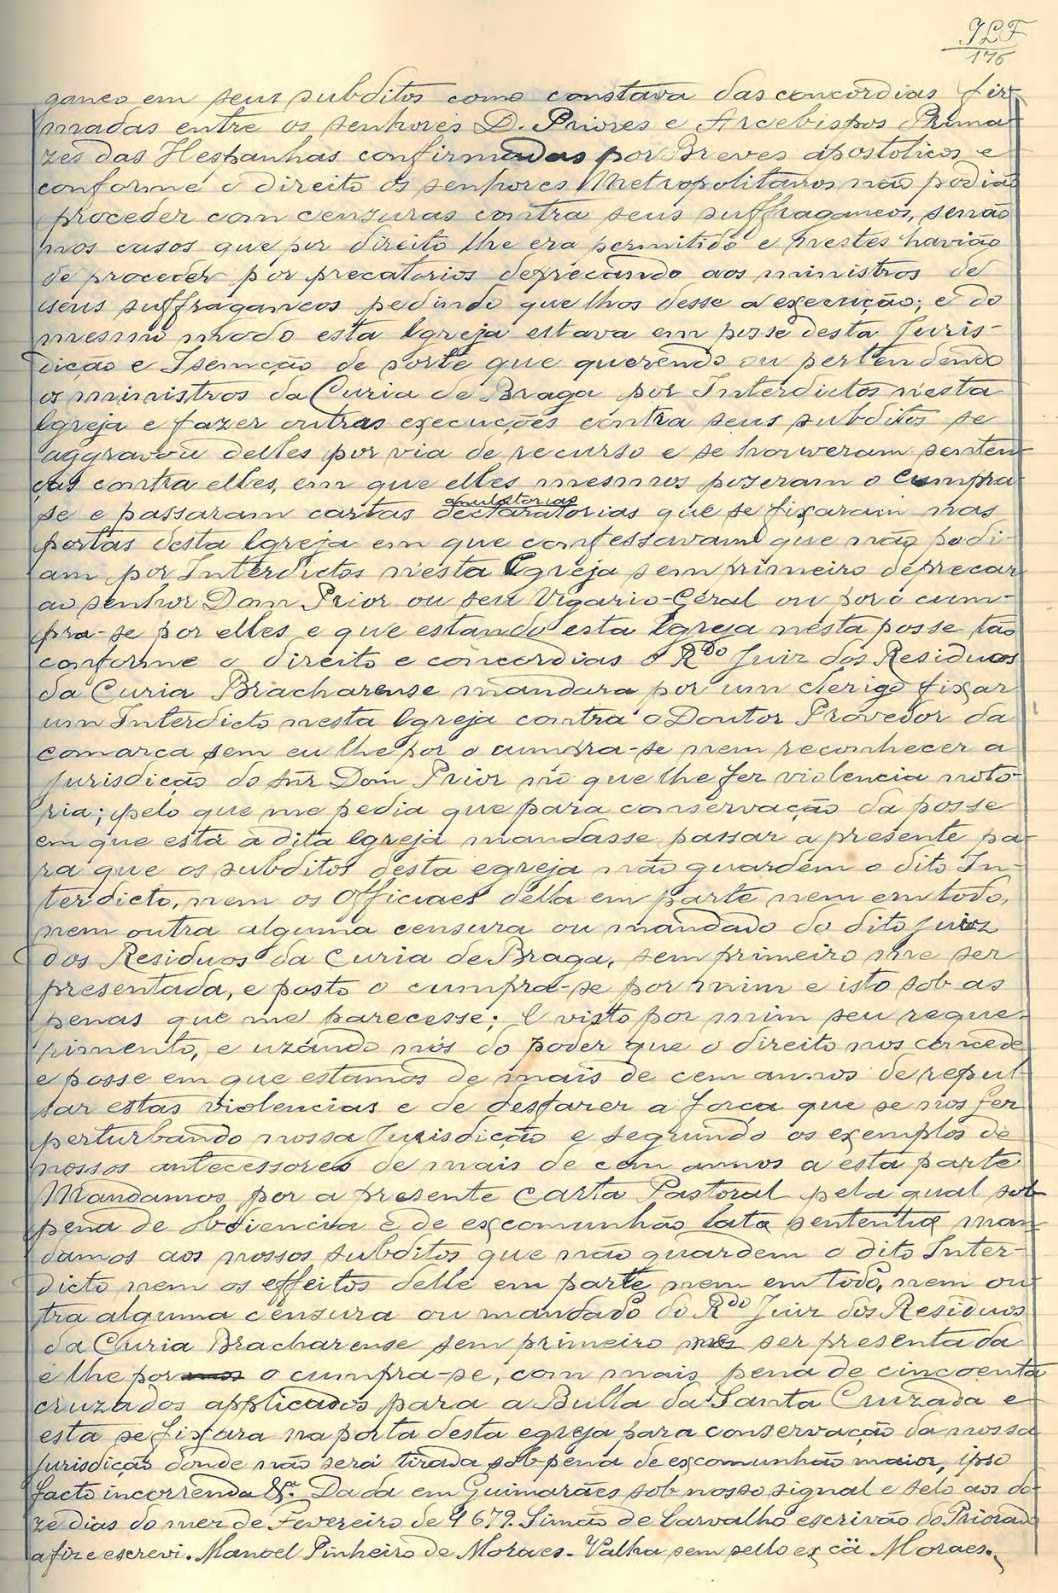 JLF
176
ganeo em seus subditos como constava das concordias fir-
madas entre os senhores D. Priores e Arcebispos Prima-
zes das Hespanhas confirmadas por Breves apostolicos e
conforme o direito os senhores Metropolitanos não podião
proceder com censuras contra seus suffraganeos, senão
nos casos que por direito lhe era permitido e nestes havião
de proceder por precatorios deprecando aos ministros de
seus suffraganeos pedindo que lhos desse a execução; e do
mesmo modo esta Igreja estava em posse desta Juris-
dição e Isemção de sorte que querendo ou pertendendo
os ministros da Curia de Braga por Interdictos nesta
Igreja e fazer outras execuções contra seus subditos se
aggravou delles por via de recurso e se houveram senten-
ças contra elles, em que elles mesmos pozeram o cumpra-
se e passaram cartas declaratorias que se fixaram nas
portas desta Igreja em que confessavam que não podi-
am por Interdictos nesta Egreja sem primeiro deprecar
ao senhor Dom Prior ou seu Vigario-Geral ou por o cum-
pra-se por elles e que estando esta Igreja nesta posse tão
conforme o direito e concordias o Rdo Juiz dos Residuos
da Curia Bracharense mandara por um clerigo fixar
um Interdicto nesta Igreja contra o Doutor Provedor da
comarca sem eu lhe por o cumpra-se nem reconhecer a
Jurisdição do Snr Dom Prior no que lhe fez violencia noto-
ria; pelo que me pedia que para conservação da posse
em que está a dita Igreja mandasse passar a presente pa-
ra que os subditos desta egreja não guardem o dito In-
terdicto, nem os Officiaes della em parte nem em todo,
nem outra alguma censura ou mandado do dito juiz
dos Residuos da Curia de Braga, sem primeiro me ser
presentada, e posto o cumpra-se por mim e isto sob as
penas que me parecesse; E visto por mim seu reque-
rimento, e uzando nós do poder que o direito nos concede
e posse em que estamos de mais de cem annos de repul-
sar estas violencias e de desfazer a força que se nos fez
perturbando nossa Jurisdicção e segundo os exemplos de
nossos antecessores de mais de cem annos a esta parte
Mandamos por a presente Carta Pastoral pela qual sob
pena de obdiencia e de excomunhão lata sententia man-
damos aos nossos subditos que não guardem o dito Inter-
dicto nem os effeitos delle em parte nem em todo, nem ou-
tra alguma censura ou mandado do Rdo Juiz dos Residuos
da Curia Bracharense sem primeiro me ser presentada
e lhe por o cumpra-se, com mais pena de cincoenta
cruzados applicados para a Bulla da Santa Cruzada e
esta se fixara na porta desta egreja para conservação da nossa
Jurisdição donde não será tirada sob pena de excomunhão maior, ipso
facto incorrenda &a. Dada em Guimarães sob nosso signal e selo aos do-
ze dias do mez de Fevereiro de 1679. Simão de Carvalho escrivão do Priorado
a fiz e escrevi. Manoel Pinheiro de Moraes. Valha sem sello ex cã Moraes.